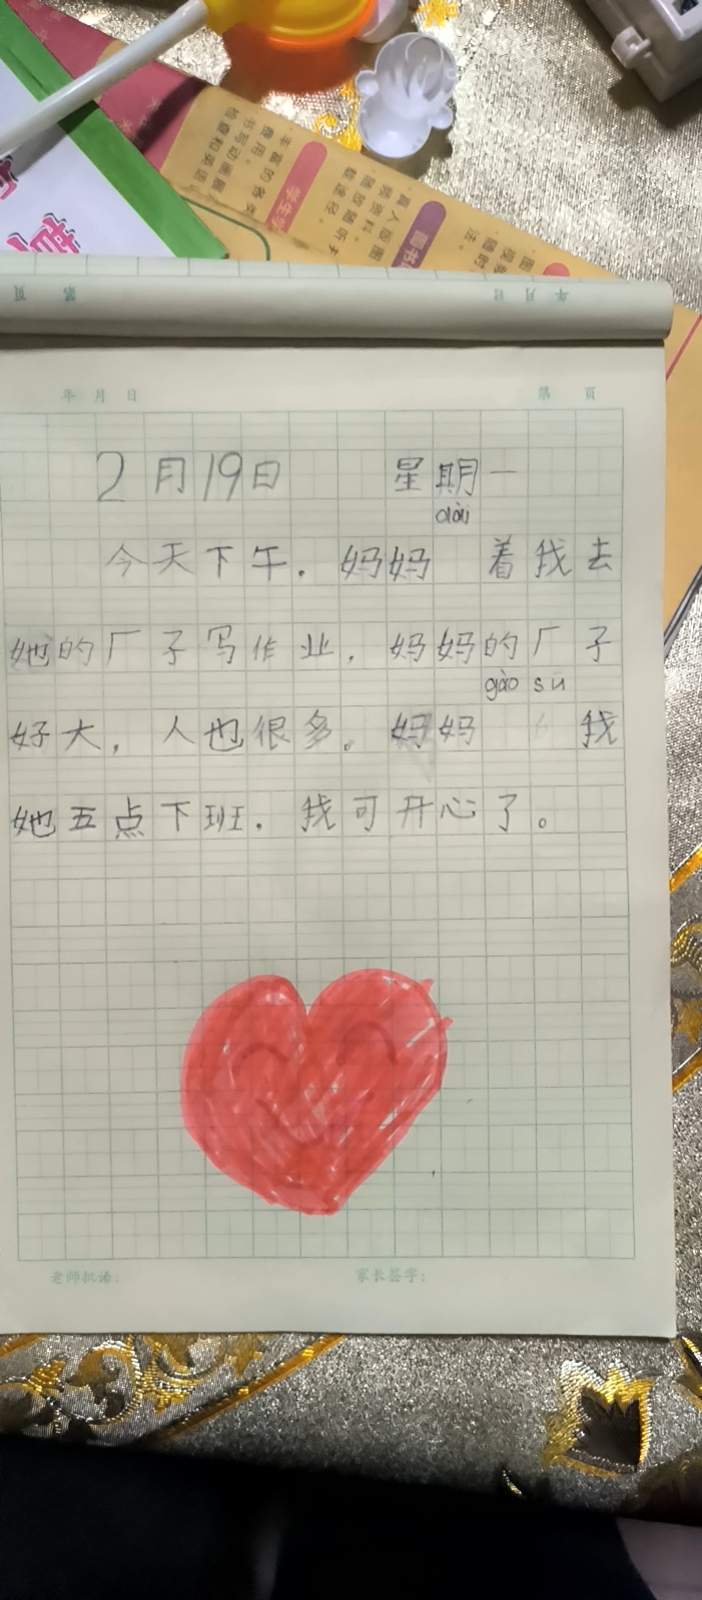 学生
图书
页 第 日 月 年
年 月 日 第 页
2月19日 星期一
dài
今天下午．妈妈 着我去
她的厂子写作业．妈妈的厂子
gào sù
好大，人也很多。妈妈 我
她五点下班．我可开心了。
老师批语： 家长签字：